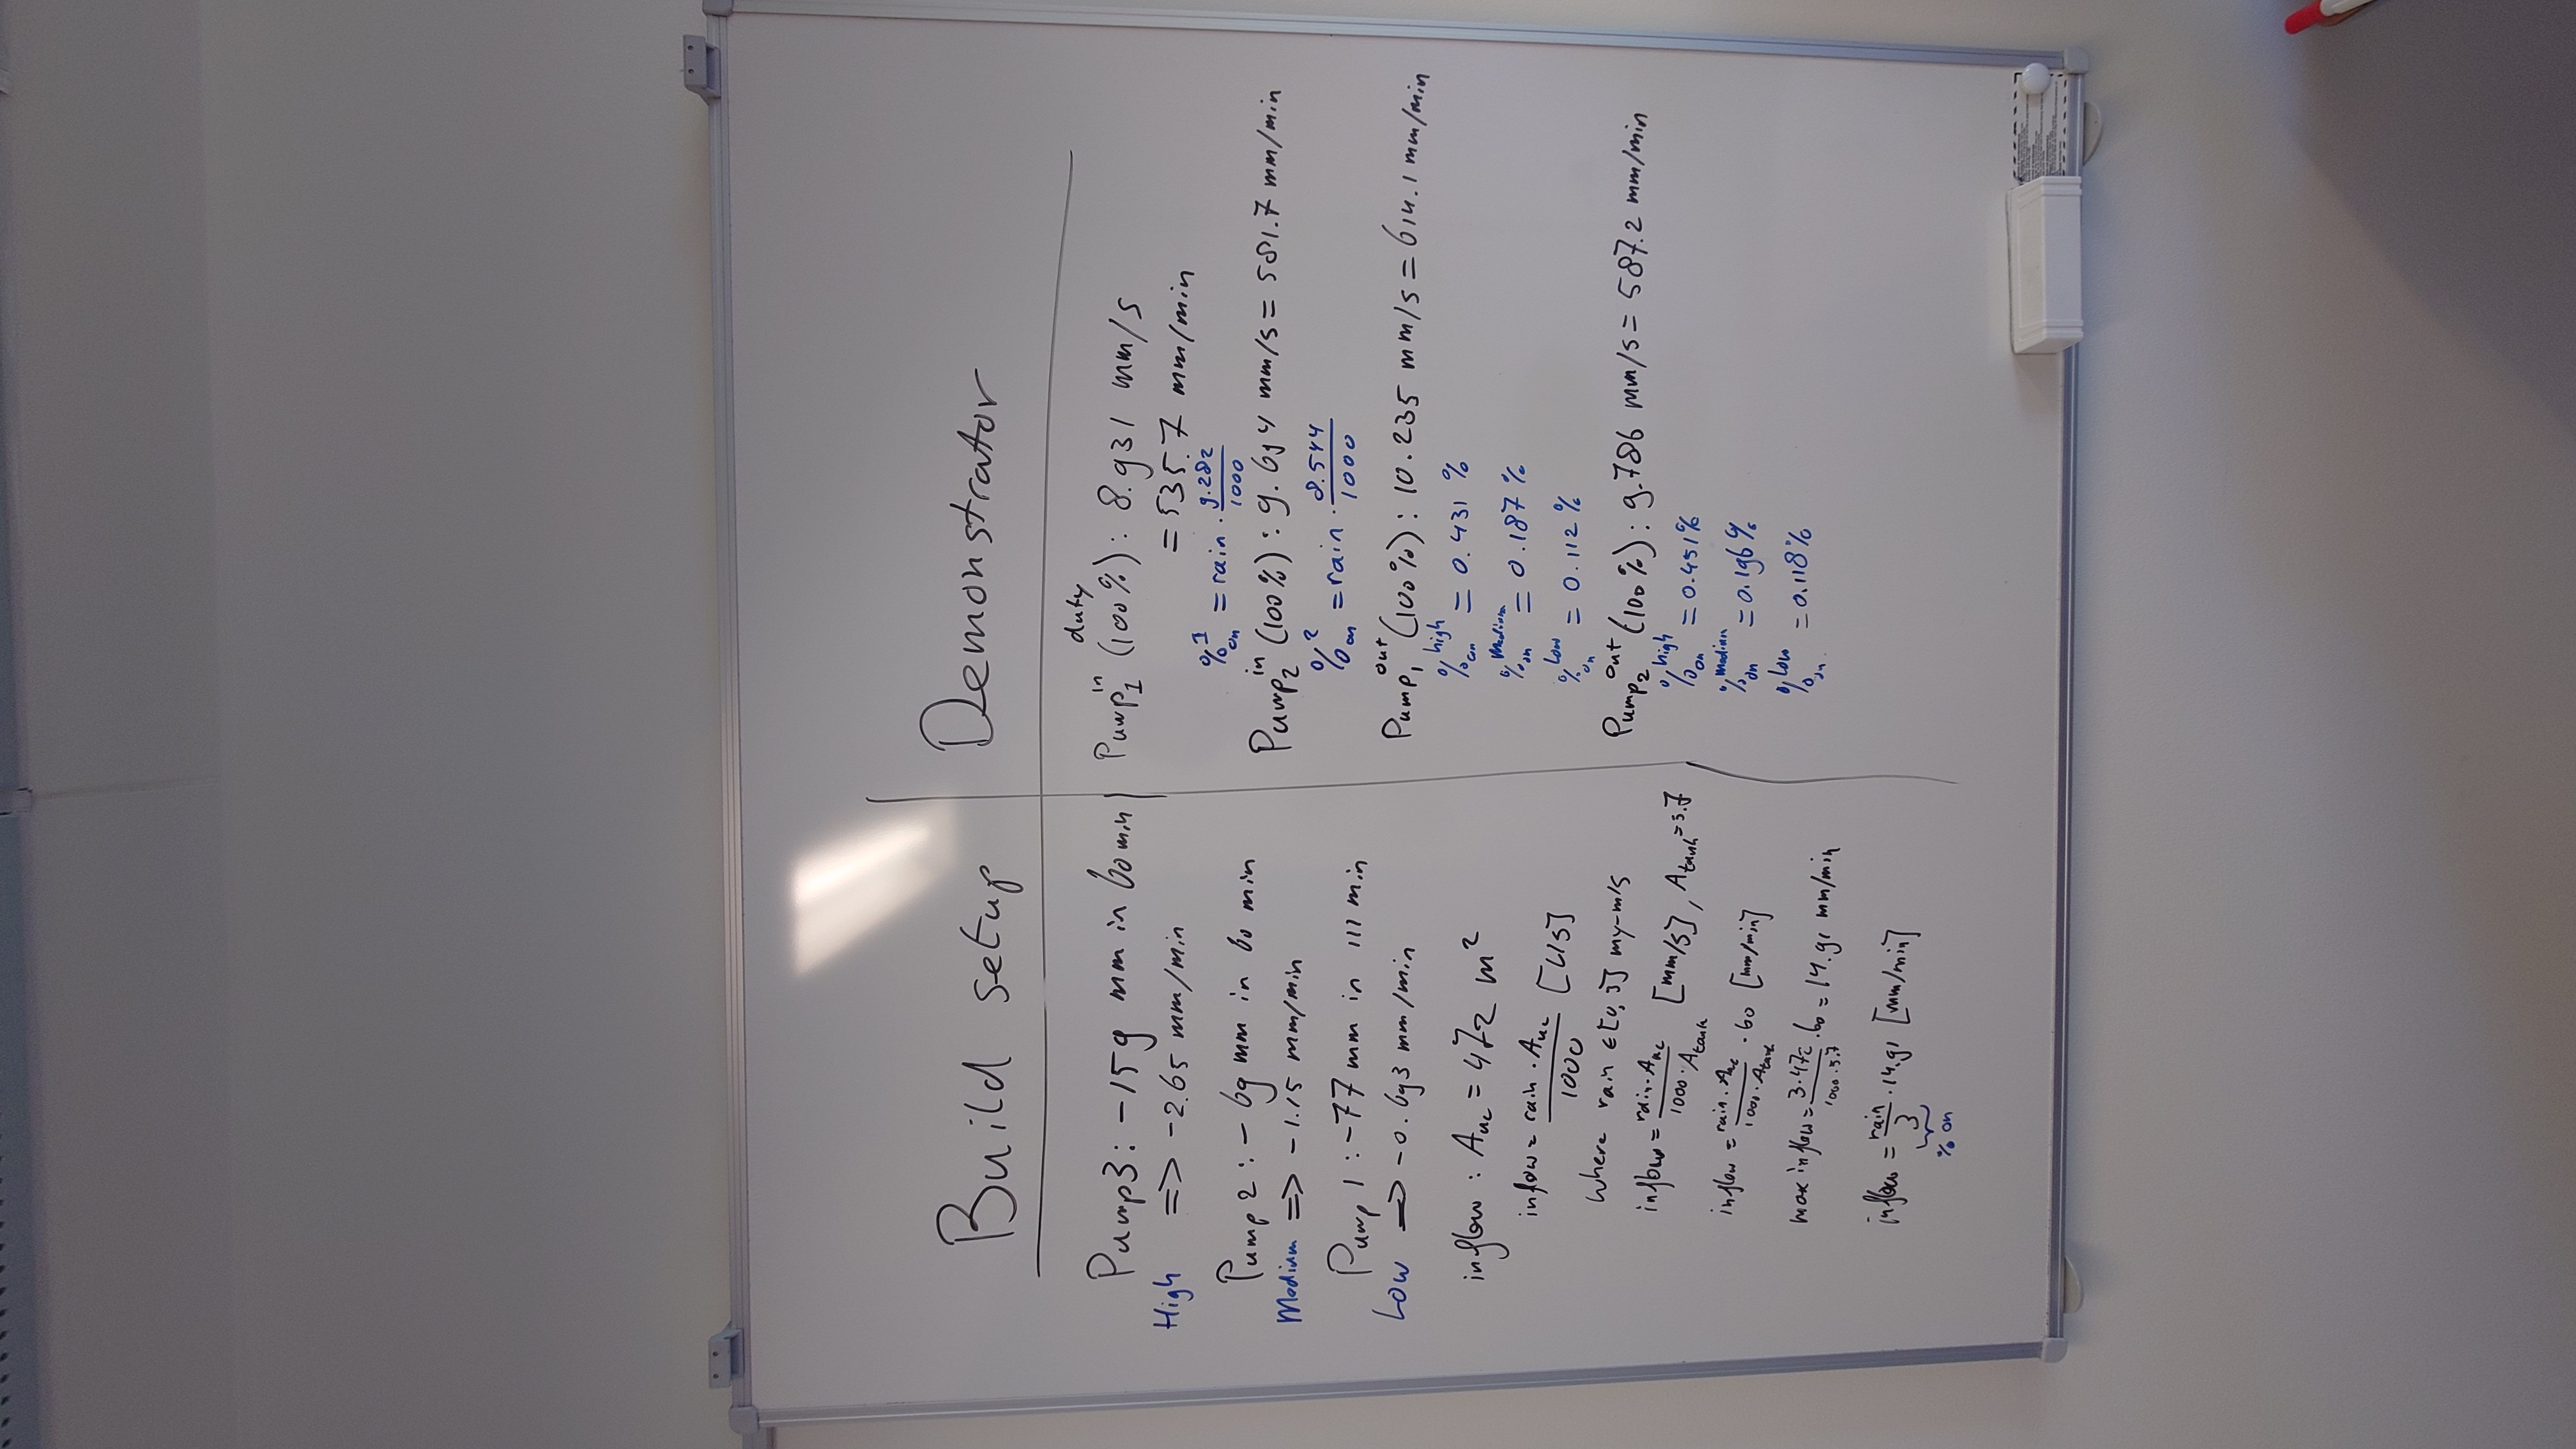 Build setup
Pump3: -159 mm in 60 min
High => -2.65 mm/min
Pump2: -69 mm in 60 min
Medium => -1.15 mm/min
Pump1: -77 mm in 111 min
Low => -0.693 mm/min
inflow: A_uc = 472 m²
inflow = rain · A_uc / 1000 [L/s]
where rain ∈ [0,3] my-m/s
inflow = rain · A_uc / 1000 · A_tank [mm/s], A_tank = 5.7
inflow = rain · A_uc / 1000 · A_tank · 60 [mm/min]
max inflow = 3 · 472 / 1000 · 5.7 · 60 = 14.91 mm/min
inflow = rain / 3 · 14.91 [mm/min]
% on
Demonstrator
duty
Pump_1^in (100%): 8.931 mm/s
= 535.7 mm/min
%_on^1 = rain · 9.282 / 1000
Pump_2^in (100%): 9.694 mm/s = 581.7 mm/min
%_on^2 = rain · 8.544 / 1000
Pump_1^out (100%): 10.235 mm/s = 614.1 mm/min
%_on^high = 0.431 %
%_on^Medium = 0.187 %
%_on^Low = 0.112 %
Pump_2^out (100%): 9.786 mm/s = 587.2 mm/min
%_on^high = 0.451%
%_on^medium = 0.196%
%_on^Low = 0.118%